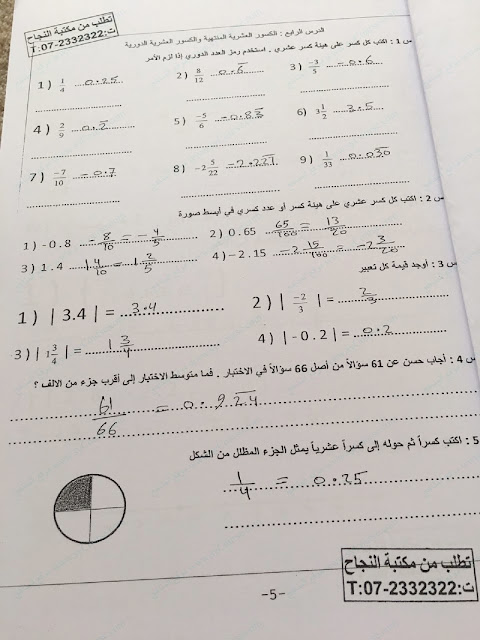 تطلب من مكتبة النجاح
ت:07-2332322:T
الدرس الرابع : الكسور العشرية المنتهية والكسور العشرية الدورية
س 1 : اكتب كل كسر على هيئة كسر عشري . استخدم رمز العدد الدوري إذا لزم الأمر
1 ) 1/4 0.25 2 ) 8/12 0.6̅ 3 ) -3/5 -0.6
4 ) 2/9 0.2̅ 5 ) -5/6 -0.83̅ 6) 3 1/2 3.5
7 ) -7/10 -0.7 8 ) -2 5/22 -2.227̅ 9 ) 1/33 0.030̅
س 2 : اكتب كل كسر عشري على هيئة كسر أو عدد كسري في أبسط صورة
1 ) -0.8 -8/10 = -4/5 2) 0.65 65/100 = 13/20
3 ) 1.4 1 4/10 = 1 2/5 4) -2.15 -2 15/100 = -2 3/20
س 3 : أوجد قيمة كل تعبير
1 ) | 3.4 | = 3.4 2 ) | -2/3 | = 2/3
3 ) | 1 3/4 | = 1 3/4 4 ) | -0.2 | = 0.2
س 4 : أجاب حسن عن 61 سؤالاً من أصل 66 سؤالاً في الاختبار . فما متوسط الاختبار إلى أقرب جزء من الالف ؟
61/66 = 0.924
5 : اكتب كسراً ثم حوله إلى كسراً عشرياً يمثل الجزء المظلل من الشكل
1/4 = 0.25
تطلب من مكتبة النجاح
ت:07-2332322:T
-5-